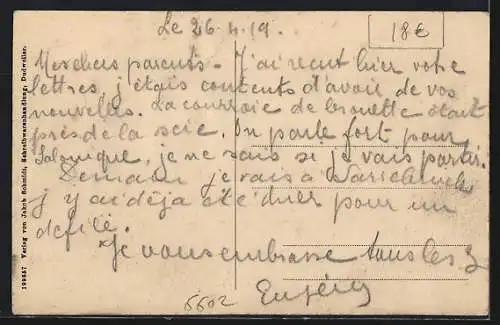 Le 26.4.19.
18€
Mes chers parents - J'ai recut hier votre
lettres, j'étais contents d'avoie de vos
nouvelles. La courroie de brouette était
près de la scie. On parle fort pour
Salonique, je ne sais si je vais partir.
Demain je vais à
j'y ai déjà été hier pour un
défilé.
Je vous embrasse tous les 3
6602
199557 Verlag von Jakob Schmidt, Schreibwarenhandlung, Dudweiler.